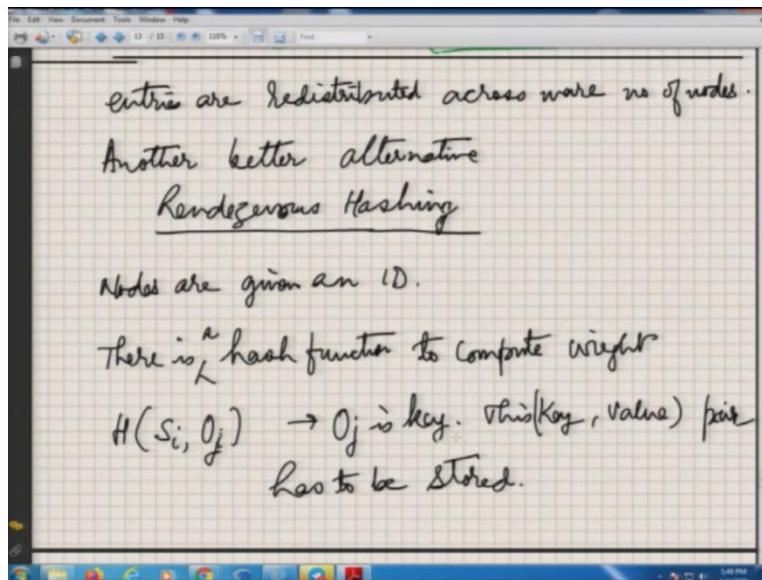 File Edit View Document Tools Window Help
13 / 15 118% Find
entries are redistributed across more no of nodes.
Another better alternative
Rendezvous Hashing
Nodes are given an ID.
There is a hash function to compute weight
H(Si, Oj) → Oj is key. This (Key, value) pair
has to be stored.
5:49 PM